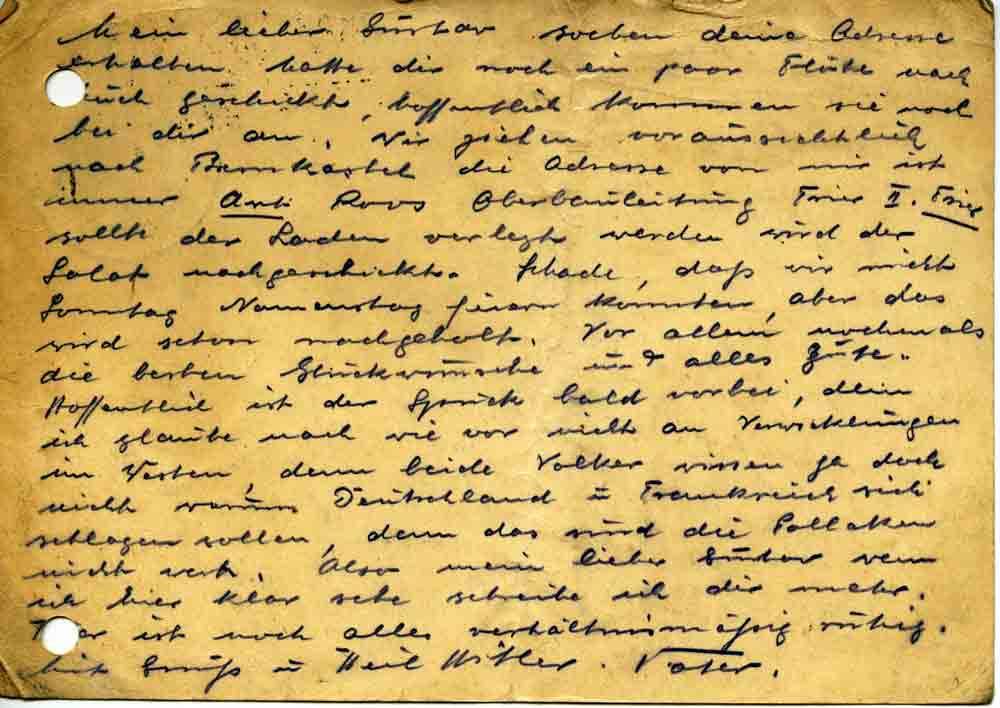 Mein lieber Gustav soeben deine Adresse
erhalten, hatte dir noch ein paar nach
geschickt, hoffentlich kommen sie noch
bei dir an. Wir ziehen voraussichtlich
nach Bernkastel die Adresse von mir ist
immer Roos Oberbauleitung Trier II. Trier
sollte der Laden verlegt werden wird der
Salat nachgeschickt. Schade, daß wir nicht
Sonntag Namenstag feiern konnten, aber das
wird schon nachgeholt. Vor allem nochmals
die besten Glückwünsche und alles Gute.
Hoffentlich ist der Spuck bald vorbei, denn
ich glaube nach wie vor nicht an Verwickelungen
im Westen, denn beide Völker wissen ja doch
nicht warum Deutschland u Frankreich sich
schlagen sollen, denn das sind die Pollaken
nicht wert. Also mein lieber Gustav wenn
ich hier klar sehe schreibe ich dir mehr.
Hier ist noch alles verhältnismäßig ruhig.
Mit Gruß u Heil Hitler. Vater.